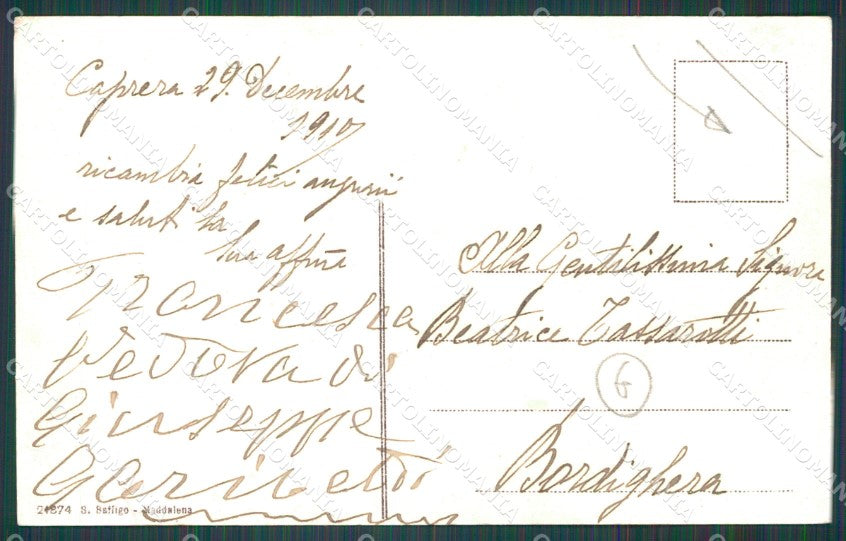 Caprera 29. Decembre
1910
ricambia felici augurii
e saluti la
Sua affma
Francesca
Vedova di
Giuseppe
Garibaldi
21874 S. Saffigo - Maddalena
Alla Gentilissima Signora
Beatrice Tassarotti
6
Bordighera
CARTOLINOMANIA